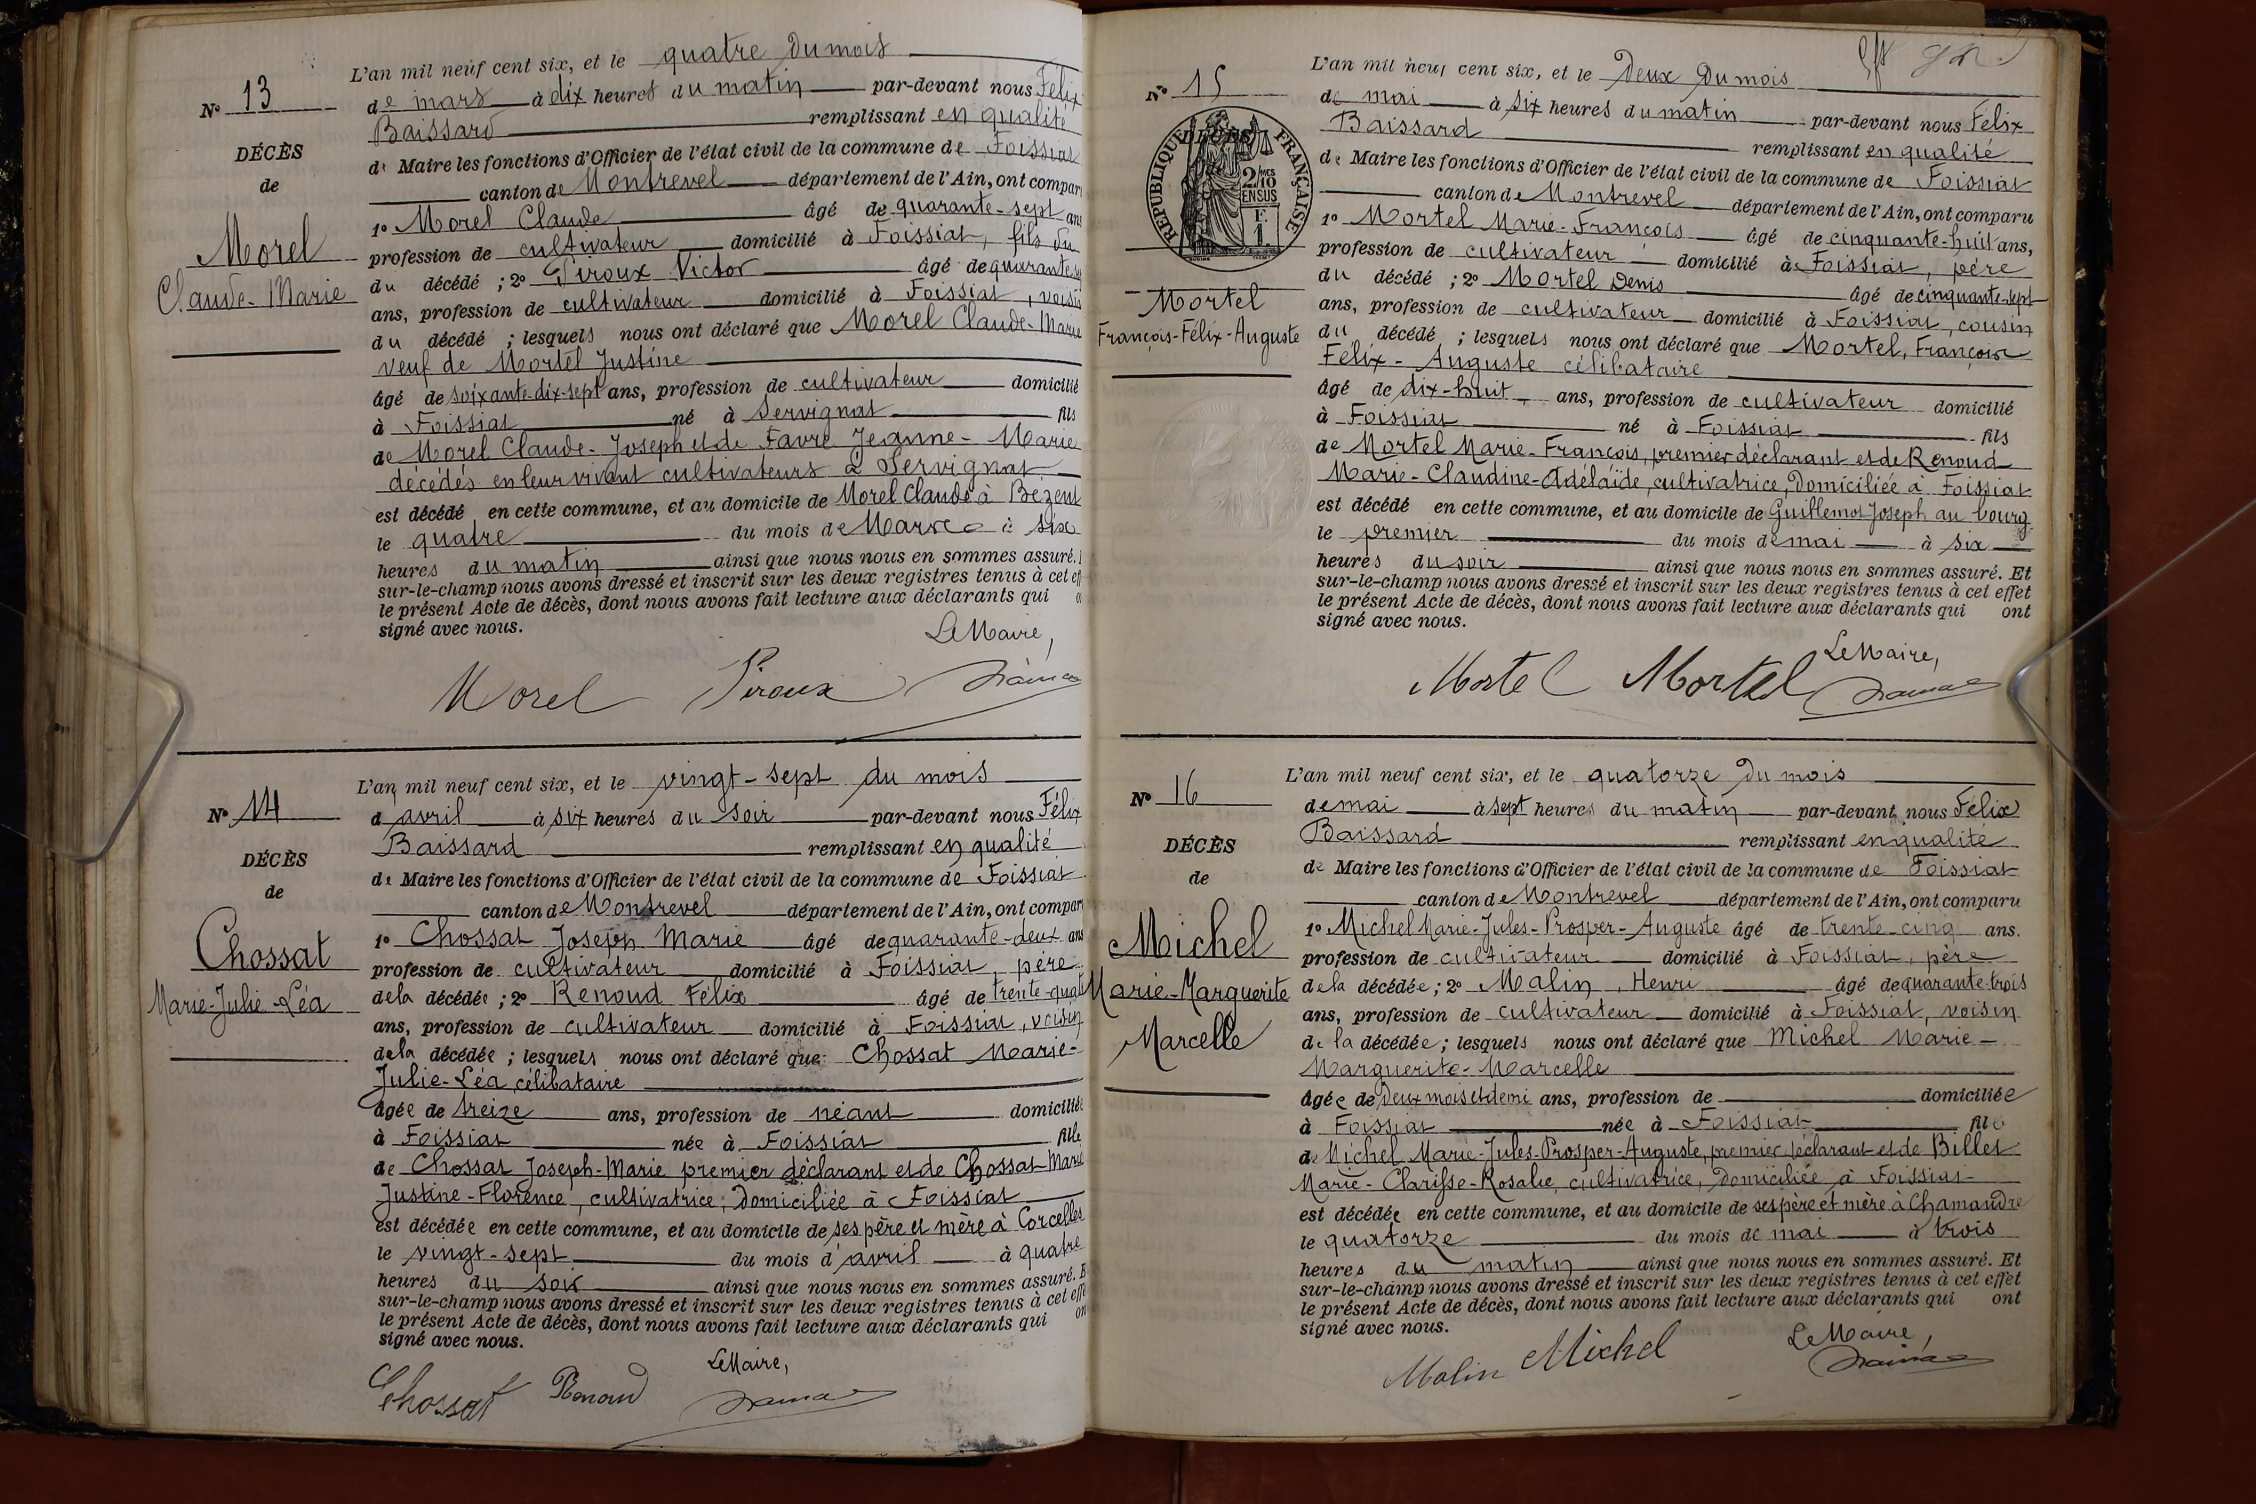 L'an mil neuf cent six, et le quatre du mois
Nº 13
de mars à dix heures du matin par-devant nous Félix
Baissard remplissant en qualité
DÉCÈS
de Maire les fonctions d'Officier de l'état civil de la commune de Foissiat
de
canton de Montrevel département de l'Ain, ont compar
1º Morel Claude âgé de quarante-sept ans
Morel
profession de cultivateur domicilié à Foissiat, fils du
Claude-Marie
du décédé ; 2º Piroux Victor âgé de quarante
ans, profession de cultivateur domicilié à Foissiat, voisin
du décédé ; lesquels nous ont déclaré que Morel Claude-Marie
veuf de Mortel Justine
âgé de soixante-dix-sept ans, profession de cultivateur domicilié
à Foissiat né à Servignat fils
de Morel Claude-Joseph et de Favre Jeanne-Marie
décédés en leur vivant cultivateurs à Servignat
est décédé en cette commune, et au domicile de Morel Claude à Bézent
le quatre du mois de Mars à six
heures du matin ainsi que nous nous en sommes assuré.
sur-le-champ nous avons dressé et inscrit sur les deux registres tenus à cet eff
le présent Acte de décès, dont nous avons fait lecture aux déclarants qui o
signé avec nous.
Le Maire,
Morel Piroux
L'an mil neuf cent six, et le vingt-sept du mois
Nº 14
d'avril à six heures du soir par-devant nous Félix
Baissard remplissant en qualité
DÉCÈS
de Maire les fonctions d'Officier de l'état civil de la commune de Foissiat
de
canton de Montrevel département de l'Ain, ont compar
1º Chossat Joseph Marie âgé de quarante-deux ans
Chossat
profession de cultivateur domicilié à Foissiat, père
Marie-Julie-Léa
de la décédée ; 2º Renoud Félix âgé de trente-quat
ans, profession de cultivateur domicilié à Foissiat, voisin
de la décédée ; lesquels nous ont déclaré que Chossat Marie-
Julie-Léa célibataire
âgée de treize ans, profession de néant domiciliée
à Foissiat née à Foissiat fille
de Chossat Joseph-Marie premier déclarant et de Chossat Marie
Justine-Florence, cultivatrice, domiciliée à Foissiat
est décédée en cette commune, et au domicile de ses père et mère à Corcelles
le vingt-sept du mois d'avril à quatre
heures du soir ainsi que nous nous en sommes assuré. E
sur-le-champ nous avons dressé et inscrit sur les deux registres tenus à cet effe
le présent Acte de décès, dont nous avons fait lecture aux déclarants qui on
signé avec nous.
Le Maire,
Chossat Renoud
L'an mil neuf cent six, et le Deux du mois
Nº 15
de mai à six heures du matin par-devant nous Félix
Baissard remplissant en qualité
RÉPUBLIQUE FRANÇAISE
DÉCÈS
2/10 EN SUS
F. 1
de Maire les fonctions d'Officier de l'état civil de la commune de Foissiat
canton de Montrevel département de l'Ain, ont comparu
1º Mortel Marie-François âgé de cinquante-huit ans,
profession de cultivateur domicilié à Foissiat, père
du décédé ; 2º Mortel Denis âgé de cinquante-sept
Mortel
ans, profession de cultivateur domicilié à Foissiat, cousin
François-Félix-Auguste
du décédé ; lesquels nous ont déclaré que Mortel, François
Félix-Auguste célibataire
âgé de dix-huit ans, profession de cultivateur domicilié
à Foissiat né à Foissiat fils
de Mortel Marie-François, premier déclarant et de Renoud
Marie-Claudine-Adélaïde, cultivatrice, domiciliée à Foissiat
est décédé en cette commune, et au domicile de Guillemot Joseph au bourg
le premier du mois de mai à six
heures du soir ainsi que nous nous en sommes assuré. Et
sur-le-champ nous avons dressé et inscrit sur les deux registres tenus à cet effet
le présent Acte de décès, dont nous avons fait lecture aux déclarants qui ont
signé avec nous.
Le Maire,
Mortel Mortel
L'an mil neuf cent six, et le quatorze du mois
Nº 16
de mai à sept heures du matin par-devant nous Félix
Baissard remplissant en qualité
DÉCÈS
de Maire les fonctions d'Officier de l'état civil de la commune de Foissiat
de
canton de Montrevel département de l'Ain, ont comparu
1º Michel Marie-Jules-Prosper-Auguste âgé de trente-cinq ans.
Michel
profession de cultivateur domicilié à Foissiat, père
Marie-Marguerite
de la décédée ; 2º Malin, Henri âgé de quarante-trois
ans, profession de cultivateur domicilié à Foissiat, voisin
Marcelle
de la décédée ; lesquels nous ont déclaré que Michel Marie-
Marguerite-Marcelle
âgée de Deux mois et demi ans, profession de domiciliée
à Foissiat née à Foissiat fille
de Michel Marie-Jules-Prosper-Auguste, premier déclarant et de Billet
Marie-Clarisse-Rosalie, cultivatrice, domiciliée à Foissiat
est décédée en cette commune, et au domicile de ses père et mère à Chamandre
le quatorze du mois de mai à trois
heures du matin ainsi que nous nous en sommes assuré. Et
sur-le-champ nous avons dressé et inscrit sur les deux registres tenus à cet effet
le présent Acte de décès, dont nous avons fait lecture aux déclarants qui ont
signé avec nous.
Le Maire,
Malin Michel